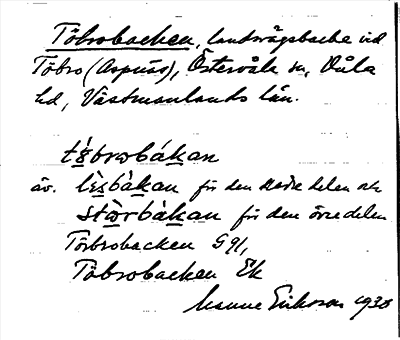 Töbrobacken, landsvägsbacke vid
Töbro (Aspnäs), Östervåla sn, Våla
hd, Västmanlands län.
tg̀brωbák̠an
äv. lèsbàk̠an för den nedre delen och
stὼrbàk̠an för den övre delen
Törbrobacken G 91,
Töbrobacken Ek
Manne Eriksson 1930